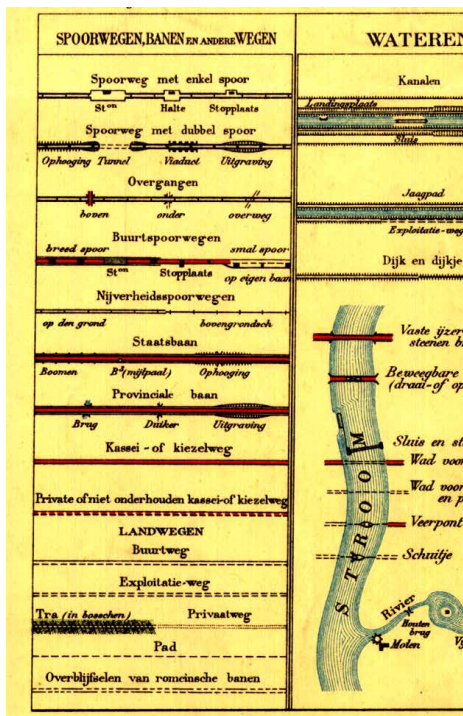 SPOORWEGEN, BANEN EN ANDERE WEGEN
Spoorweg met enkel spoor
Ston Halte Stopplaats
Spoorweg met dubbel spoor
Ophooging Tunnel Viaduct Uitgraving
Overgangen
boven onder overweg
Buurtspoorwegen
breed spoor smal spoor
Ston Stopplaats op eigen baan
Nijverheidsspoorwegen
op den grond bovengrondsch
Staatsbaan
Boomen Bs (mijlpaal) Ophooging
Provinciale baan
Brug Duiker Uitgraving
Kassei- of kiezelweg
Private of niet onderhouden kassei-of kiezelweg
LANDWEGEN
Buurtweg
Exploitatie-weg
Tra (in bosschen) Privaatweg
Pad
Overblijfselen van romeinsche banen
WATEREN
Kanalen
Landingsplaats
Sluis
Jaagpad
Exploitatie-weg
Dijk en dijkje
Vaste ijzer
steenen b
Beweegbare
(draai-of op
Sluis en st
Wad voor
Wad voor
en p
Veerpont
Schuitje
STROOM
Rivier
Houten
brug
Molen